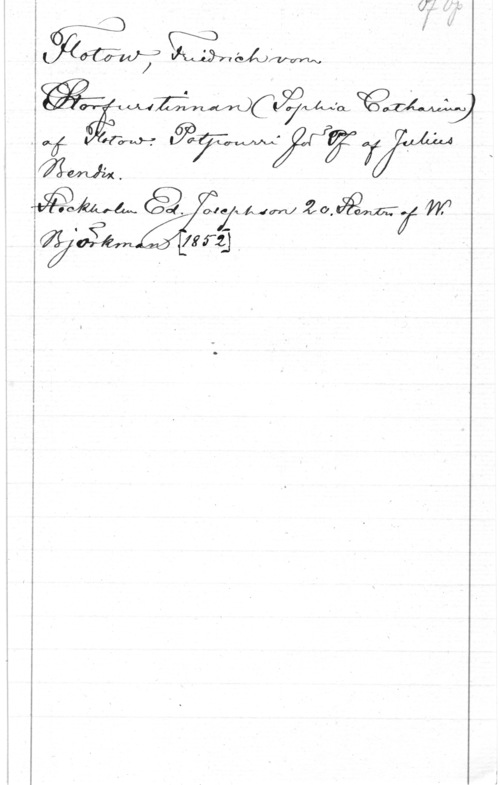 Flotow, Friedrich von
Storfurstinnan (Sophia Catharina)
af Flotow. Potpourri för Pf af Julius
Bendix.
Stockholm Ed. Josephson 20. Stentr. af W.
Björkman [1852]